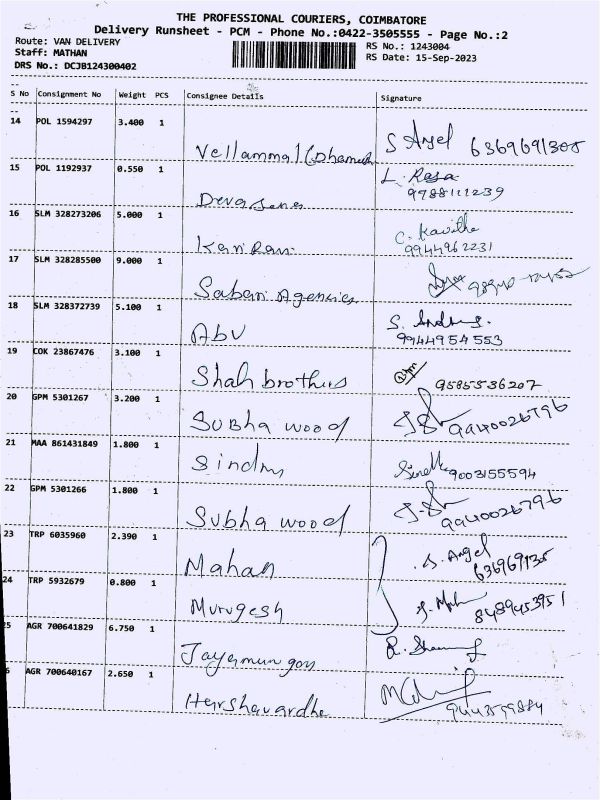 THE PROFESSIONAL COURIERS, COIMBATORE
Delivery Runsheet - PCM - Phone No.:0422-3505555 - Page No.:2
Route: VAN DELIVERY
Staff: MATHAN
DRS No.: DCJB124300402
RS No.: 1243004
RS Date: 15-Sep-2023
S No Consignment No Weight PCS Consignee Details Signature
14 POL 1594297 3.400 1
Vellammal S Angel 6369691308
15 POL 1192937 0.550 1 L. Rasa
Devasena 9788111239
16 SLM 328273206 5.000 1 C. Kavitha
Kani Rani 9944962231
17 SLM 328285500 9.000 1
Saban Agencies
18 SLM 328372739 5.100 1 S.
ABV 9944954553
19 COK 23867476 3.100 1
Shah brothers 9585536207
20 GPM 5301267 3.200 1
Subha wood 9940026796
21 MAA 861431849 1.800 1
Sindhu 9003155594
22 GPM 5301266 1.800 1
Subha wood 9940026796
23 TRP 6035960 2.390 1 S. Angel
Mahan 636969135
24 TRP 5932679 0.800 1
Murugesh 8489453951
25 AGR 700641829 6.750 1
Jayamurugan
6 AGR 700640167 2.650 1
Harshavardhe